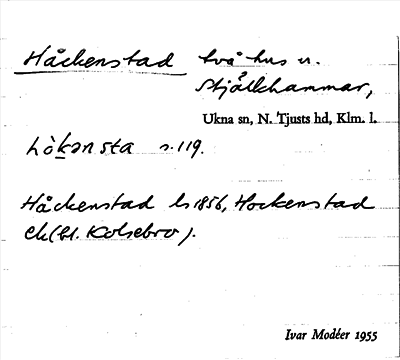 Håckenstad två hus u.
Stjälkhammar,
Ukna sn, N. Tjusts hd, Klm. l.
hòk̲ənsta s. 119.
Håckenstad ls 1856, Hockenstad
Ek (bl. Kolsebro).
Ivar Modéer 1955